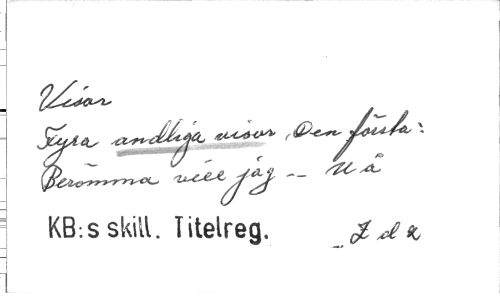 Visor
Fyra andliga visor, Den första:
Berömma vill jag -- U å
KB:s skill. Titelreg. _ Z d 2